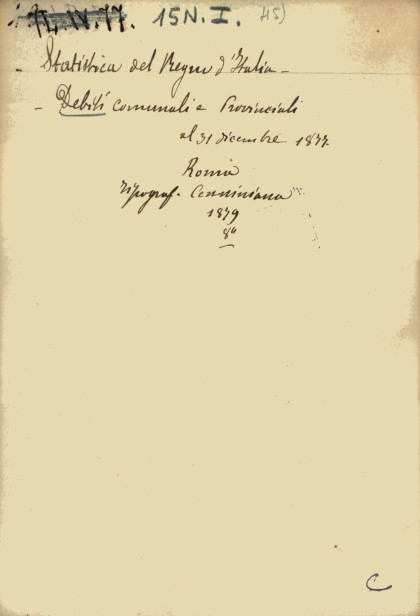 15 N. I. 45)
- Statistica del Regno d'Italia -
- Debiti comunali e Provinciali
al 31 dicembre 1877.
Roma
Tipograf. Cenniniana
1879
8°
C